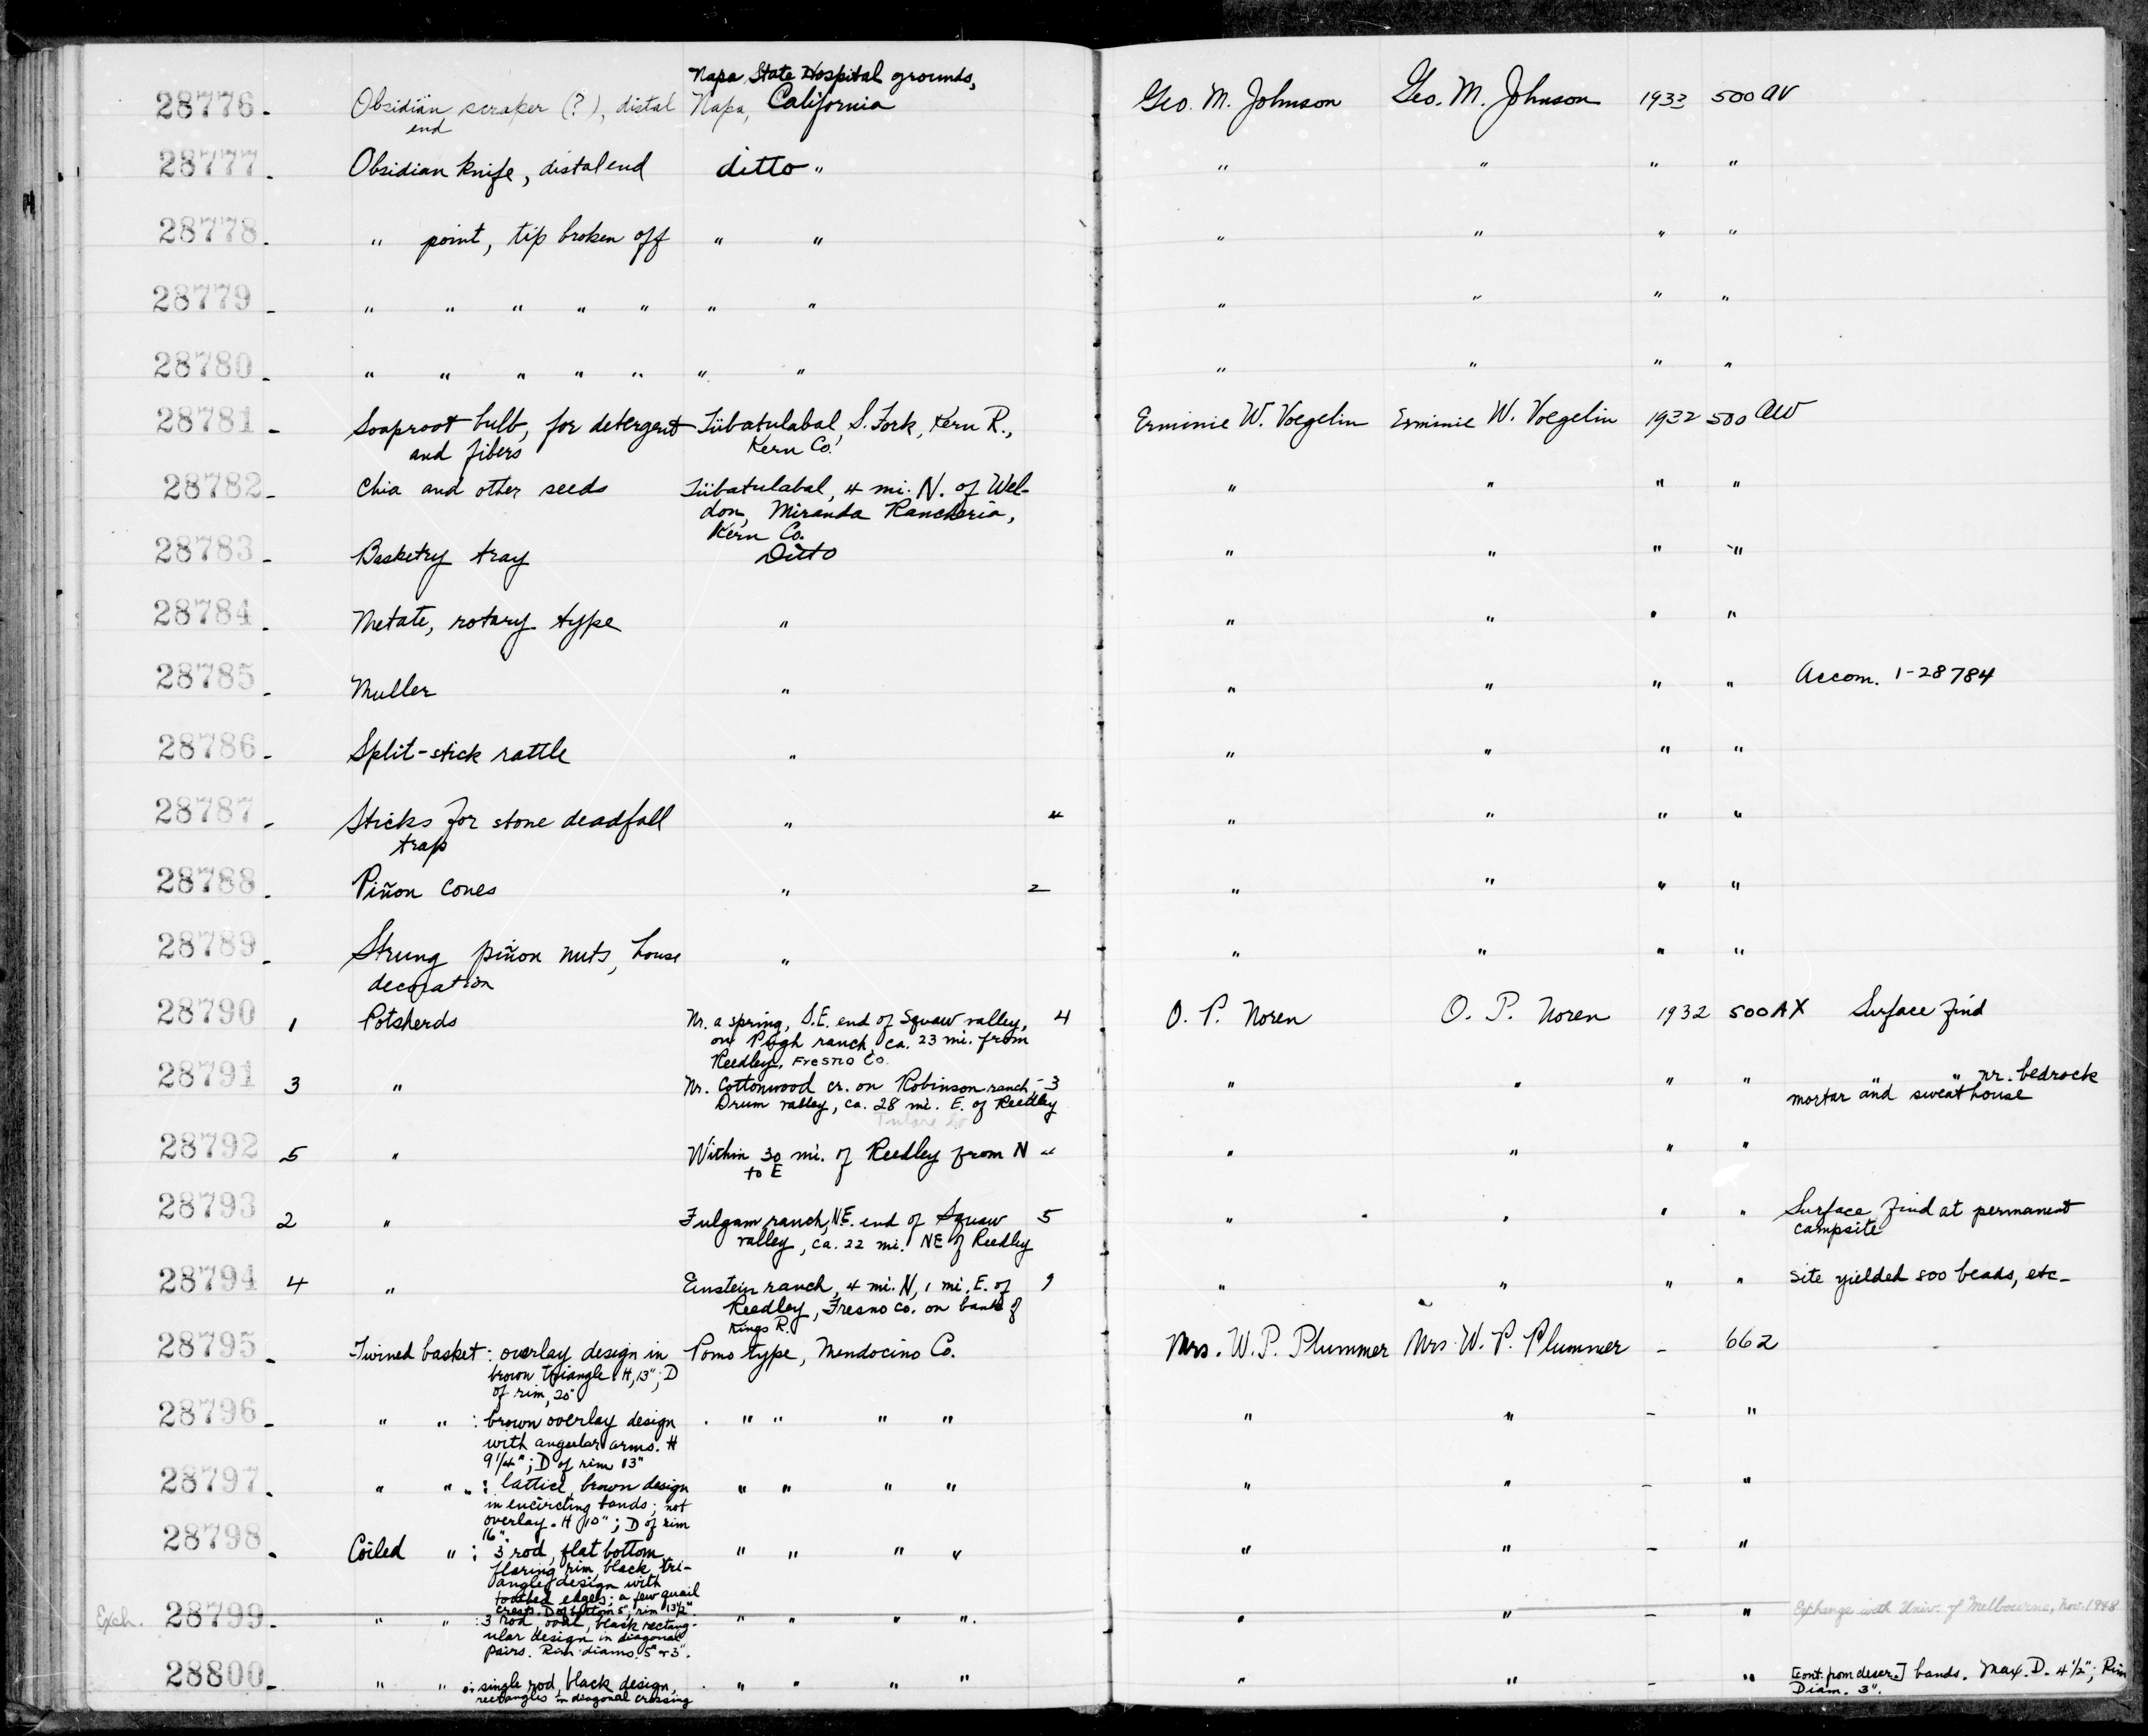 Napa State Hospital grounds,
28776. Obsidian scraper (?), distal Napa, California Geo. M. Johnson Geo. M. Johnson 1933 500 AV
end
28777. Obsidian knife, distal end ditto " " " " "
28778. " point, tip broken off " " " " " "
28779. " " " " " " " " " " "
28780. " " " " " " " " " " "
28781. Soaproot bulb, for detergent Tübatulabal, S. Fork, Kern R., Erminie W. Voegelin Erminie W. Voegelin 1932 500 AW
and fibers Kern Co.
28782. Chia and other seeds Tübatulabal, 4 mi. N. of Wel- " " " "
don, Miranda Rancheria,
Kern Co.
28783. Basketry tray Ditto " " " "
28784. Metate, rotary type " " " " "
28785. Muller " " " " " Accom. 1-28784
28786. Split-stick rattle " " " " "
28787. Sticks for stone deadfall " 4 " " " "
trap
28788. Piñon cones " 2 " " " "
28789. Strung piñon nuts, house " " " " "
decoration
28790 1 Potsherds Nr. a spring, S.E. end of Squaw valley, 4 O. P. Noren O. P. Noren 1932 500AX Surface find
on Pugh ranch, ca. 23 mi. from
Reedley, Fresno Co.
28791 3 " Nr. Cottonwood cr. on Robinson ranch, 3 " " " " " " nr. bedrock
Drum valley, ca. 28 mi. E. of Reedley mortar and sweathouse
Tulare Co
28792 5 " Within 30 mi. of Reedley from N " " " " "
to E
28793 2 " Fulgam ranch, NE. end of Squaw 5 " " " " Surface find at permanent
valley, ca. 22 mi. NE of Reedley campsite
28794 4 " Einstein ranch, 4 mi. N, 1 mi. E. of 9 " " " " Site yielded 500 beads, etc.
Reedley, Fresno Co. on bank of
Kings R.
28795. Twined basket: overlay design in Pomo type, Mendocino Co. Mrs. W. P. Plummer Mrs. W. P. Plummer - 662
brown triangle. H, 13"; D
of rim, 20"
28796. " " : brown overlay design " " " " " " - "
with angular arms. H
9 1/4"; D of rim 13"
28797. " " " : lattice, brown design " " " " " " - "
in encircling bands; not
overlay. H 10"; D of rim
16".
28798. Coiled " : 3 rod, flat bottom " " " " " " - "
flaring rim, black tri-
angle design with
toothed edges; a few quail
crests. D of bottom 5", rim 13 1/2"
Exch. 28799. " " : 3 rod, oval, black rectang- " " " " " " - " Exchange with Univ. of Melbourne, Nov. 1948
ular design in diagonal
pairs. Rim diams. 5" + 3".
28800. " " : single rod, black design, " " " " " " - " [cont. from descr.] bands. Max. D. 4 1/2"; Rim
rectangles in diagonal crossing Diam. 3".